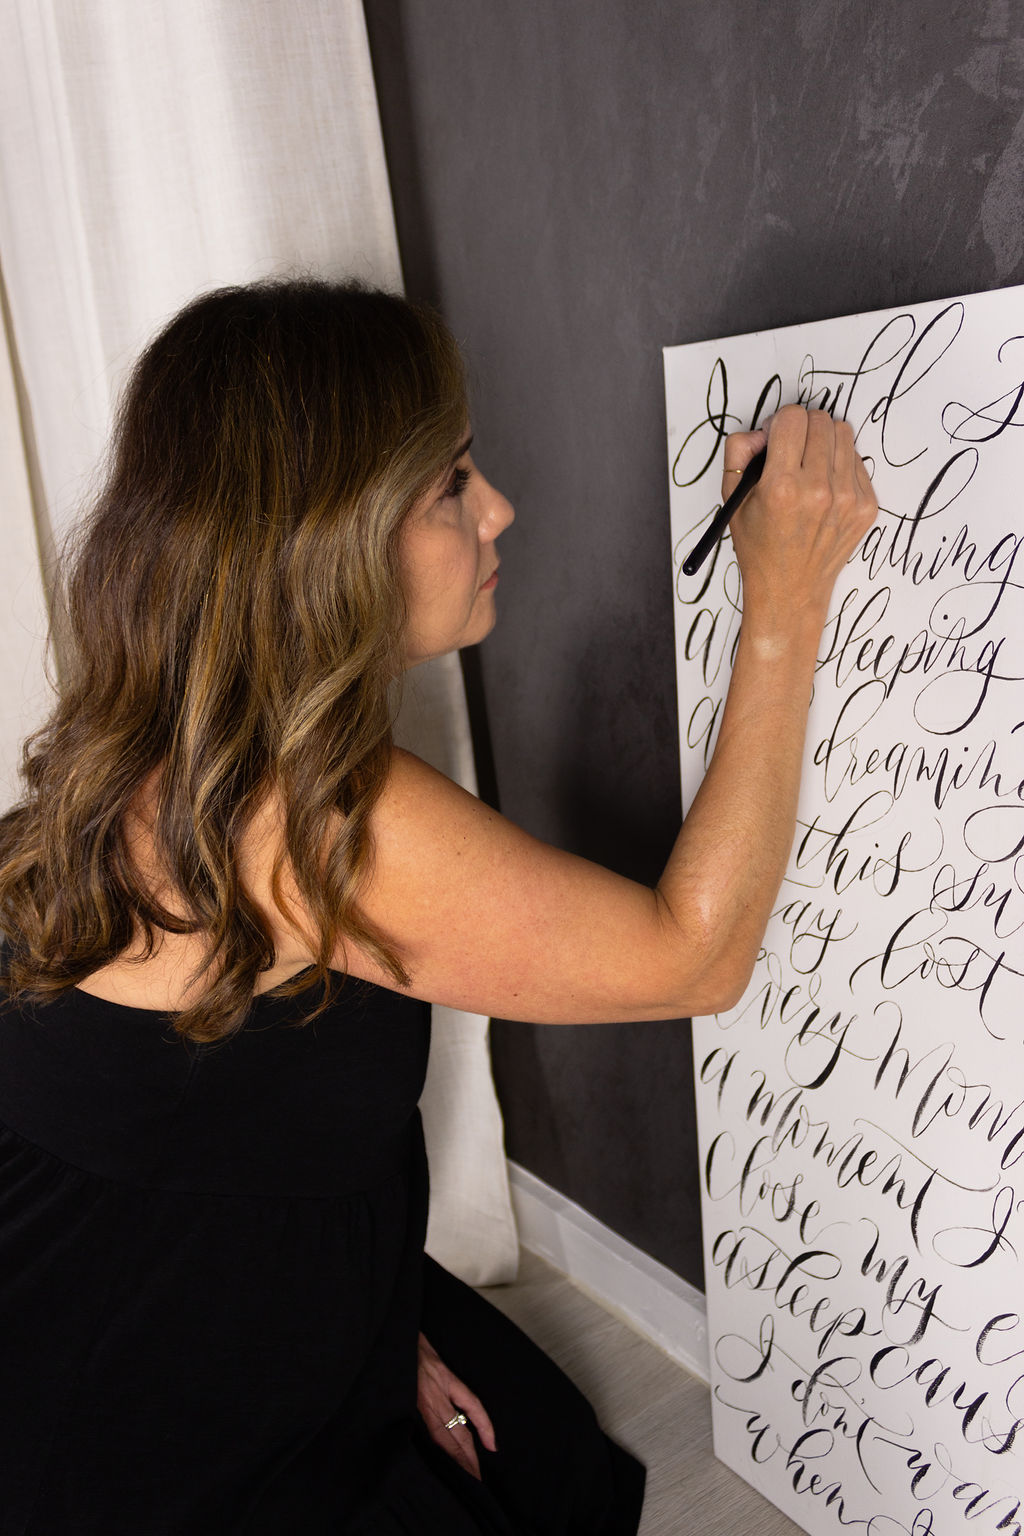 I could
athing
sleeping
dreaming
this su
ay lost
every mom
a moment I
close my e
asleep caus
I don't wan
when I